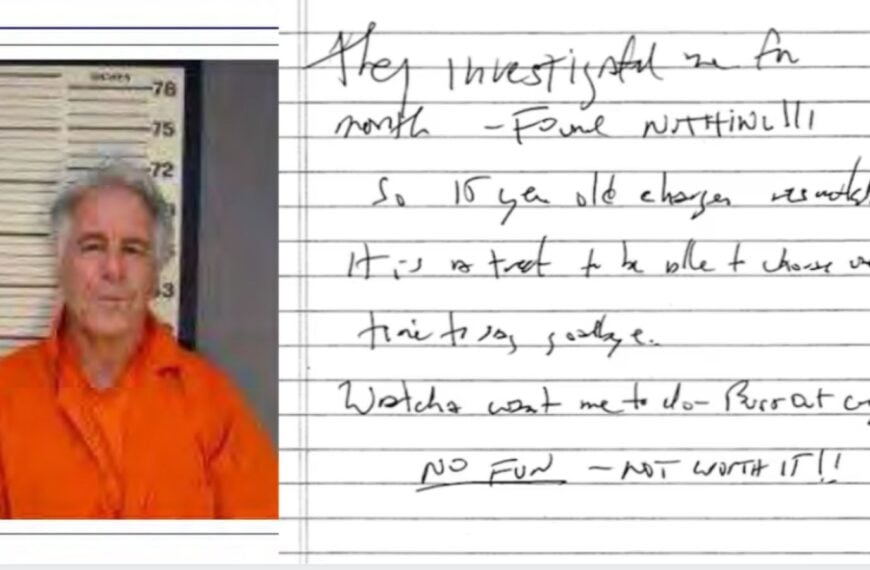 INCHES
78
75
72
They investigated me for
month - Found NOTHING!!!
So 15 year old charges resulted
It is a treat to be able to choose
time to say goodbye.
Watcha want me to do - Burst out
NO FUN - NOT WORTH IT!!